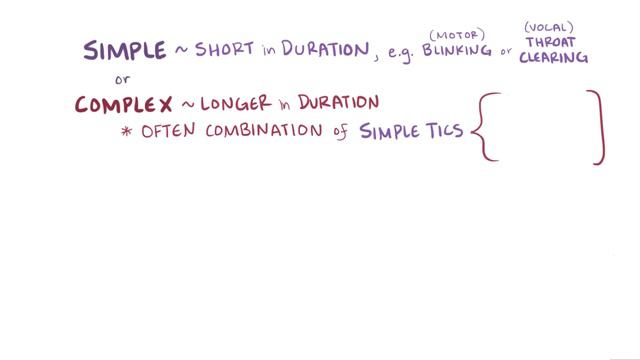 SIMPLE ~ SHORT in DURATION, e.g. (MOTOR) BLINKING or (VOCAL) THROAT CLEARING
or
COMPLEX ~ LONGER in DURATION
* OFTEN COMBINATION of SIMPLE TICS